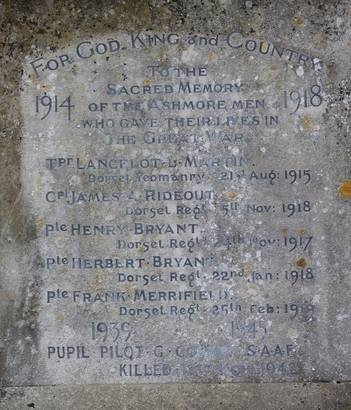 FOR GOD. KING and COUNTRY
TO THE
SACRED MEMORY
1914 OF THE ASHMORE MEN 1918
WHO GAVE THEIR LIVES IN
THE GREAT WAR
Tpr LANCELOT·L·MARTIN.
Dorset Yeomanry. 21st Aug: 1915
Cpl JAMES·A·RIDEOUT.
Dorset Regt. 5th Nov: 1918
Pte HENRY BRYANT.
Dorset Regt. Nov: 1917
Pte HERBERT·BRYANT.
Dorset Regt. 22nd Jan: 1918
Pte FRANK·MERRIFIELD.
Dorset Regt. 25th Feb: 1919
1939 1945
PUPIL PILOT·G· S.A.A.F.
KILLED